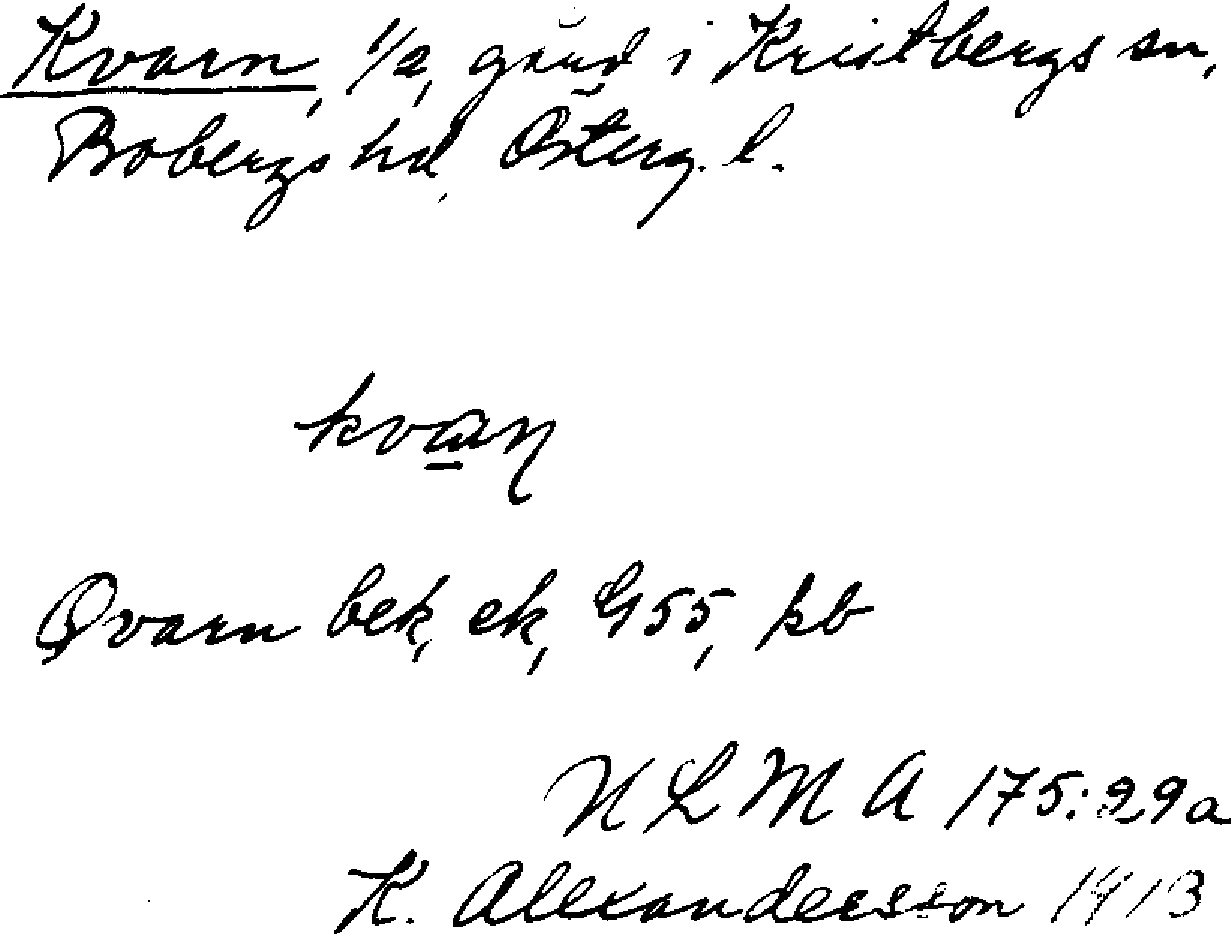 Kvarn, 1/2, gård i Kristbergs sn,
Bobergs hd, Österg. l.
kvɑn
Qvarn bek, ek, G55, kb
N L M A 175:29a
K. Alexandersson 1913